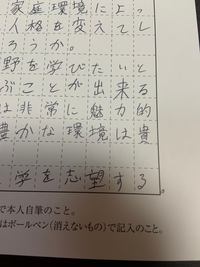 家庭環境によっ
人格を変えてし
ろうか。
野を学びたいと
ぶことが出来る
は非常に魅力的
豊かな環境は貴
学を志望する
で本人自筆のこと。
はボールペン(消えないもの)で記入のこと。